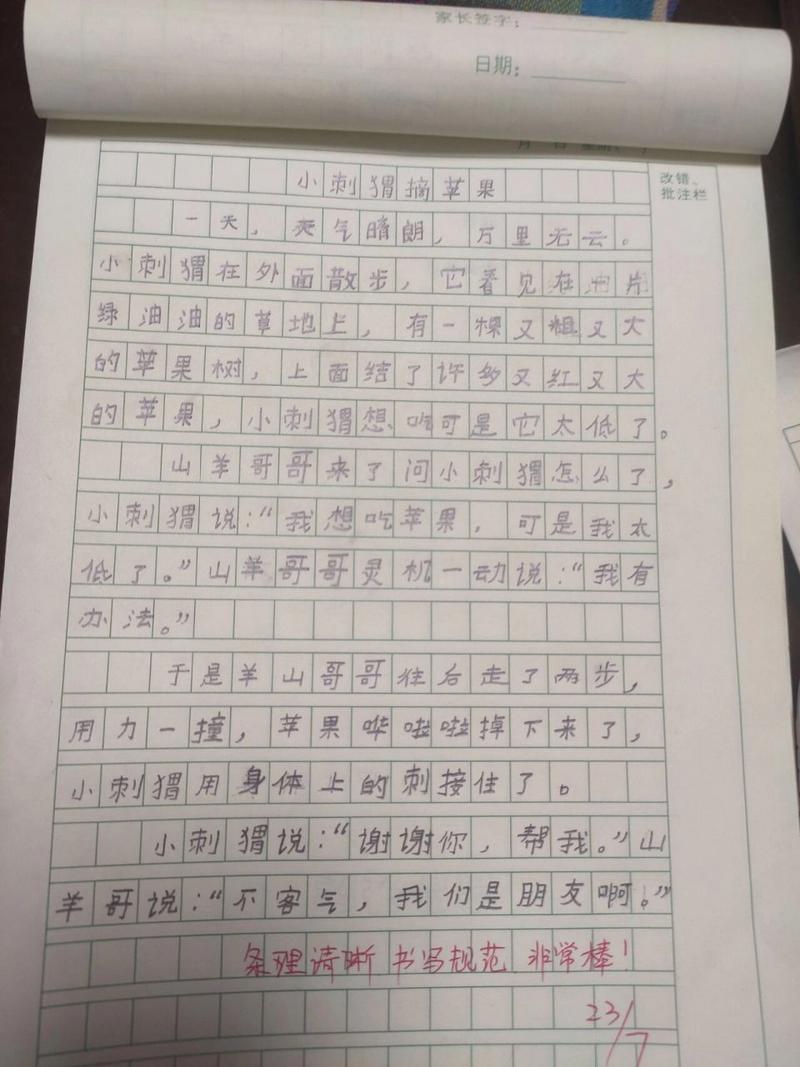 家长签字：
日期：
月 日 星期( )
改错、
批注栏
小刺猬摘苹果
一天，天气晴朗，万里无云。
小刺猬在外面散步，它看见在一片
绿油油的草地上，有一棵又粗又大
的苹果树，上面结了许多又红又大
的苹果，小刺猬想吃可是它太低了。
山羊哥哥来了问小刺猬怎么了，
小刺猬说：“我想吃苹果，可是我太
低了。”山羊哥哥灵机一动说：“我有
办法。”
于是羊山哥哥往后走了两步，
用力一撞，苹果哗啦啦掉下来了，
小刺猬用身体上的刺接住了。
小刺猬说：“谢谢你，帮我。”山
羊哥说：“不客气，我们是朋友啊！”
条理清晰 书写规范 非常棒！
23/7